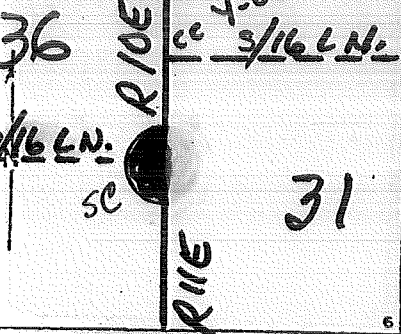 36
R10E
cc S/16 L N.
/16 L N.
SC
31
R11E
6